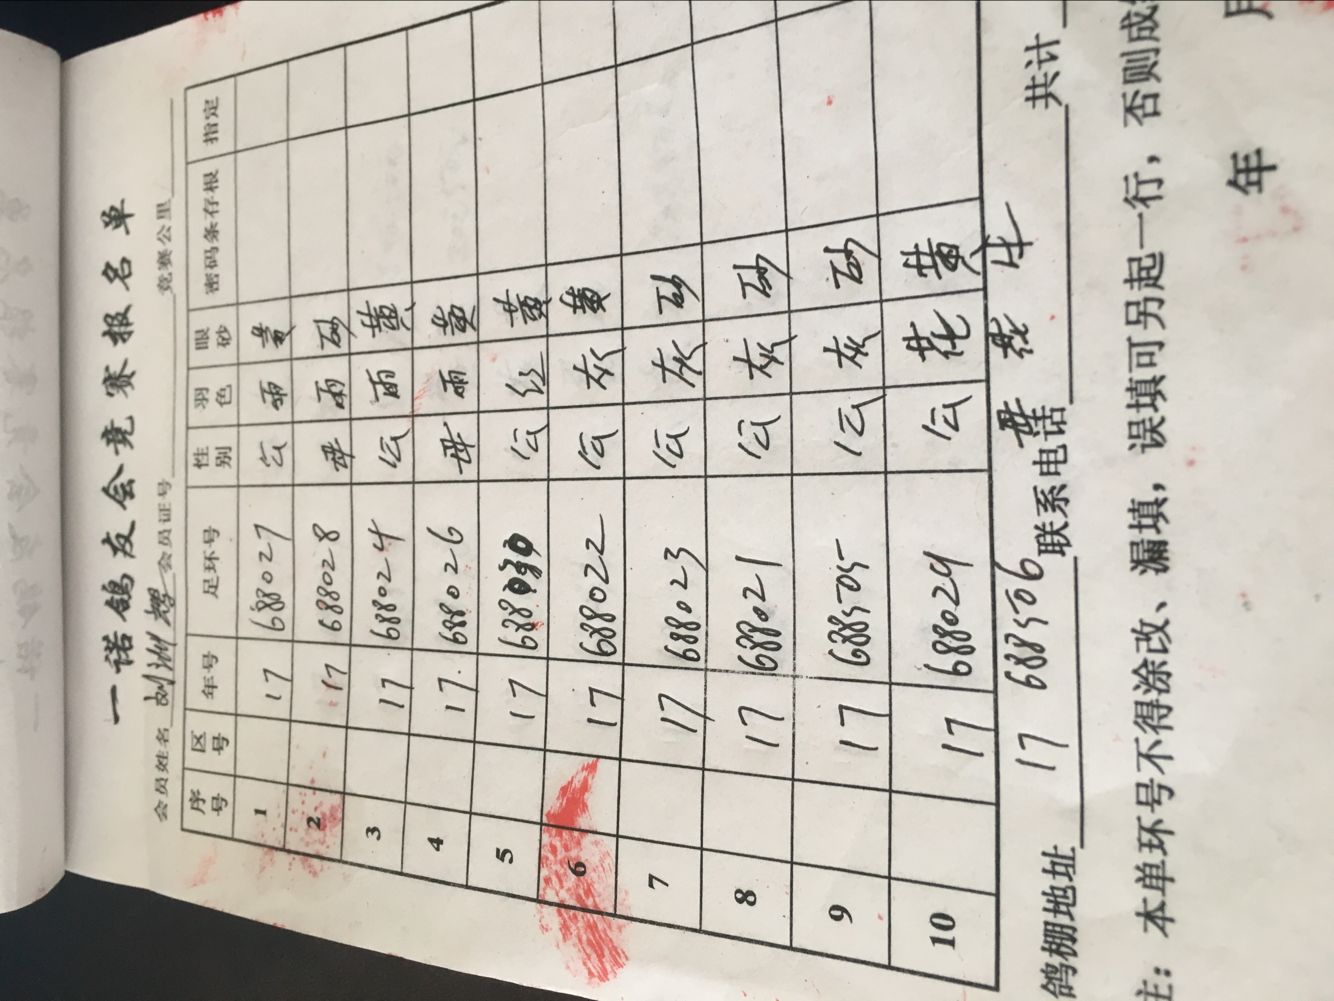 一诺鸽友会竞赛报名单
会员姓名 会员证号 竞赛公里
序号 区号 年号 足环号 性别 羽色 眼砂 密码条存根 指定
1 17 688027 公 雨 黄
2 17 688028 母 雨 砂
3 17 688024 公 雨 黄
4 17 688026 母 雨 黄
5 17 688030 公 红 黄
6 17 688022 公 灰 黄
7 17 688023 公 灰 砂
8 17 688021 公 灰 砂
9 17 688505 公 灰 砂
10 17 688029 公 花 黄
17 688506 母 花 牛
鸽棚地址 联系电话 共计
注：本单环号不得涂改、漏填，误填可另起一行，否则成
年 月